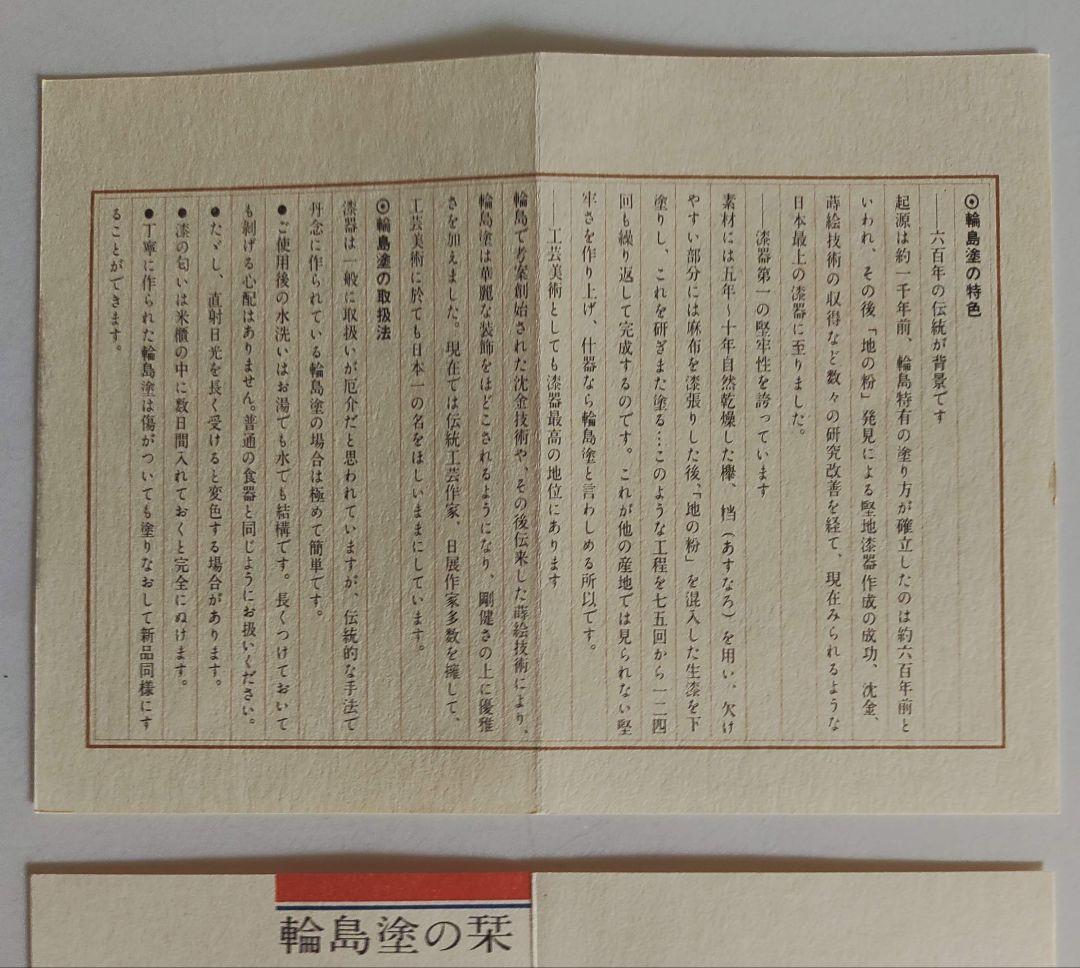 ◉輪島塗の特色
──六百年の伝統が背景です
起源は約一千年前、輪島特有の塗り方が確立したのは約六百年前と
いわれ、その後「地の粉」発見による堅地漆器作成の成功、沈金、
蒔絵技術の収得など数々の研究改善を経て、現在みられるような
日本最上の漆器に至りました。
──漆器第一の堅牢性を誇っています
素材には五年〜十年自然乾燥した欅、档(あすなろ)を用い、欠け
やすい部分には麻布を漆張りした後、「地の粉」を混入した生漆を下
塗りし、これを研ぎまた塗る…このような工程を七五回から一二四
回も繰り返して完成するのです。これが他の産地では見られない堅
牢さを作り上げ、什器なら輪島塗と言わしめる所以です。
──工芸美術としても漆器最高の地位にあります
輪島で考案創始された沈金技術や、その後伝来した蒔絵技術により、
輪島塗は華麗な装飾をほどこされるようになり、剛健さの上に優雅
さを加えました。現在では伝統工芸作家、日展作家多数を擁して、
工芸美術に於ても日本一の名をほしいままにしています。
◉輪島塗の取扱法
漆器は一般に取扱いが厄介だと思われていますが、伝統的な手法で
丹念に作られている輪島塗の場合は極めて簡単です。
●ご使用後の水洗いはお湯でも水でも結構です。長くつけておいて
も剥げる心配はありません。普通の食器と同じようにお扱いください。
●たゞし、直射日光を長く受けると変色する場合があります。
●漆の匂いは米櫃の中に数日間入れておくと完全にぬけます。
●丁寧に作られた輪島塗は傷がついても塗りなおして新品同様にす
ることができます。
輪島塗の栞